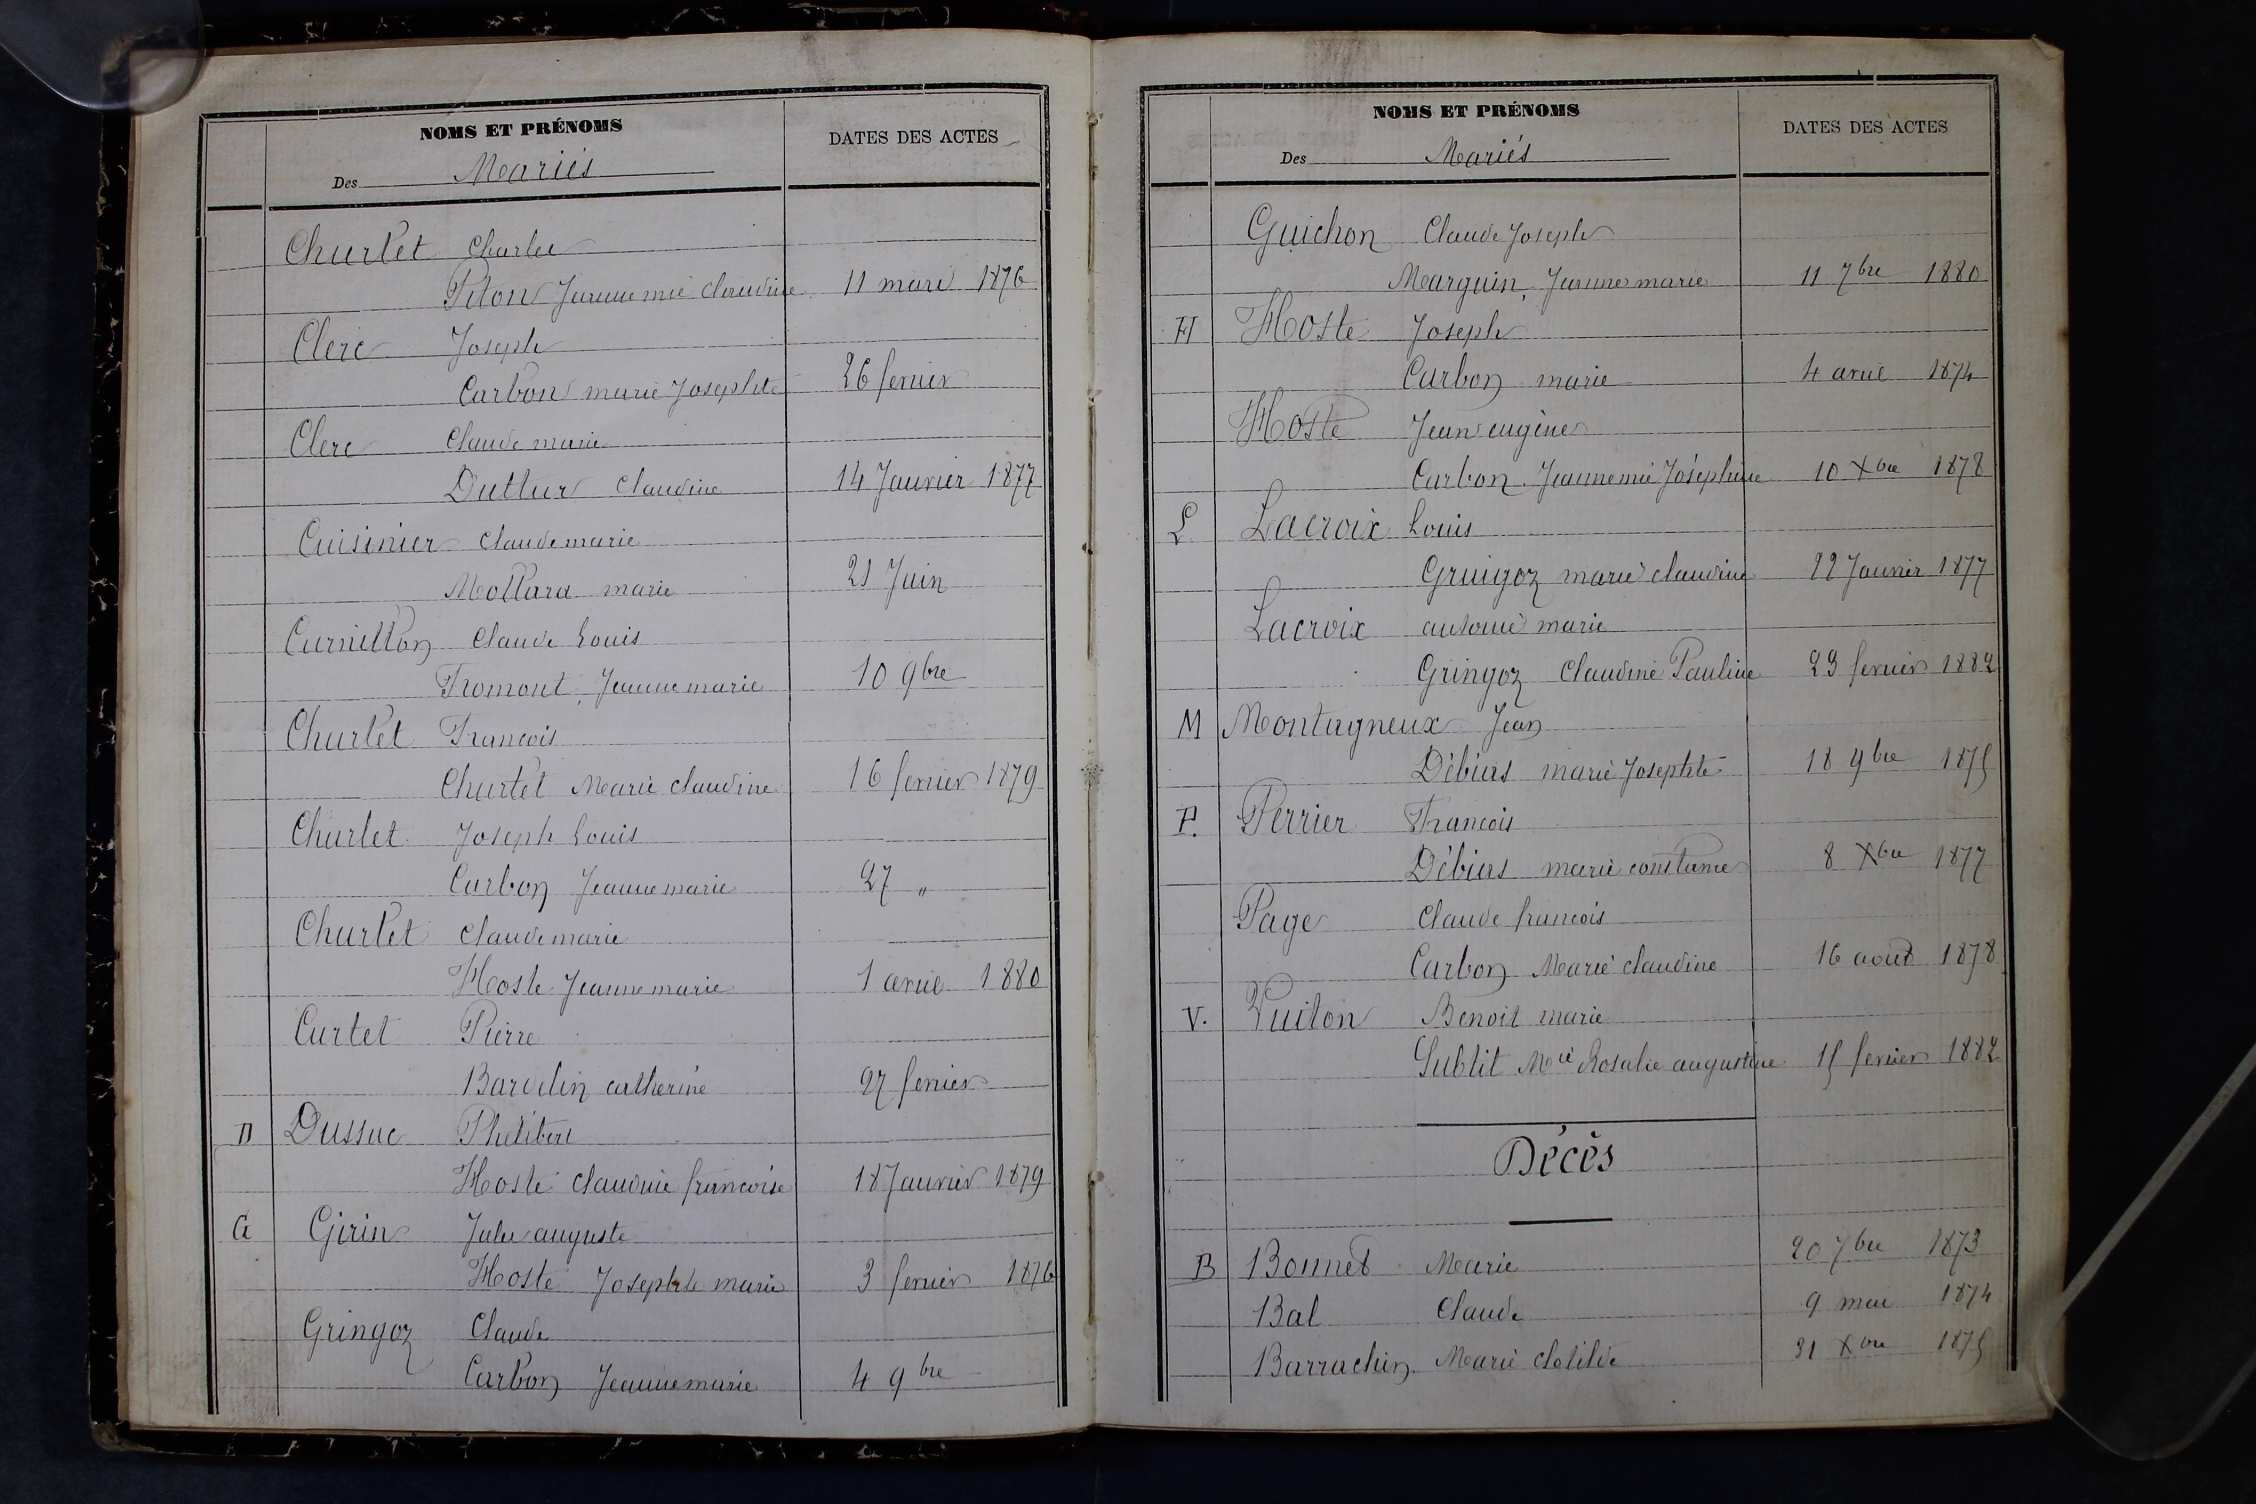 NOMS ET PRÉNOMS
Des Mariés
DATES DES ACTES
Churlet Charles
Piton Jeanne mie Claudine 11 mars 1876
Clerc Joseph
Carbon marie Josephte 26 fevrier
Clerc Claude marie
Duthur Claudine 14 Janvier 1877
Cuisinier Claude marie
Mollard marie 21 Juin
Curnillon Claude Louis
Fromont Jeanne marie 10 9bre
Churlet Francois
Churlet Marie Claudine 16 fevrier 1879
Churlet Joseph Louis
Carbon Jeanne marie 27 "
Churlet Claude marie
Hoste Jeanne marie 1 avril 1880
Curtet Pierre
Bardelin catherine 27 fevrier
D Dussuc Philibert
Hoste Claudine francoise 18 Janvier 1879
G Girin Jules auguste
Hoste Josephte marie 3 fevrier 1876
Gringoz Claude
Carbon Jeanne marie 4 9bre
NOMS ET PRÉNOMS
Des Mariés
DATES DES ACTES
Guichon Claude Joseph
Marguin, Jeanne marie 11 7bre 1880
H Hoste Joseph
Carbon marie 4 avril 1874
Hoste Jean eugène
Carbon Jeanne mie Joséphine 10 Xbre 1878
L Lacroix Louis
Gringoz marie claudine 22 Janvier 1877
Lacroix antoine marie
Gringoz Claudine Pauline 23 fevrier 1882
M Montagneux Jean
Débias marie Josephte 18 9bre 1875
P. Perrier Francois
Débias marie constance 8 Xbre 1877
Page Claude francois
Carbon Marie claudine 16 aout 1878
V. Vuiton Benoit marie
Sublit Mie Rosalie augustine 15 fevrier 1882
Décès
B Bonnet Marie 20 7bre 1873
Bal Claude 9 mai 1874
Barrachin Marie clotilde 31 Xbre 1875